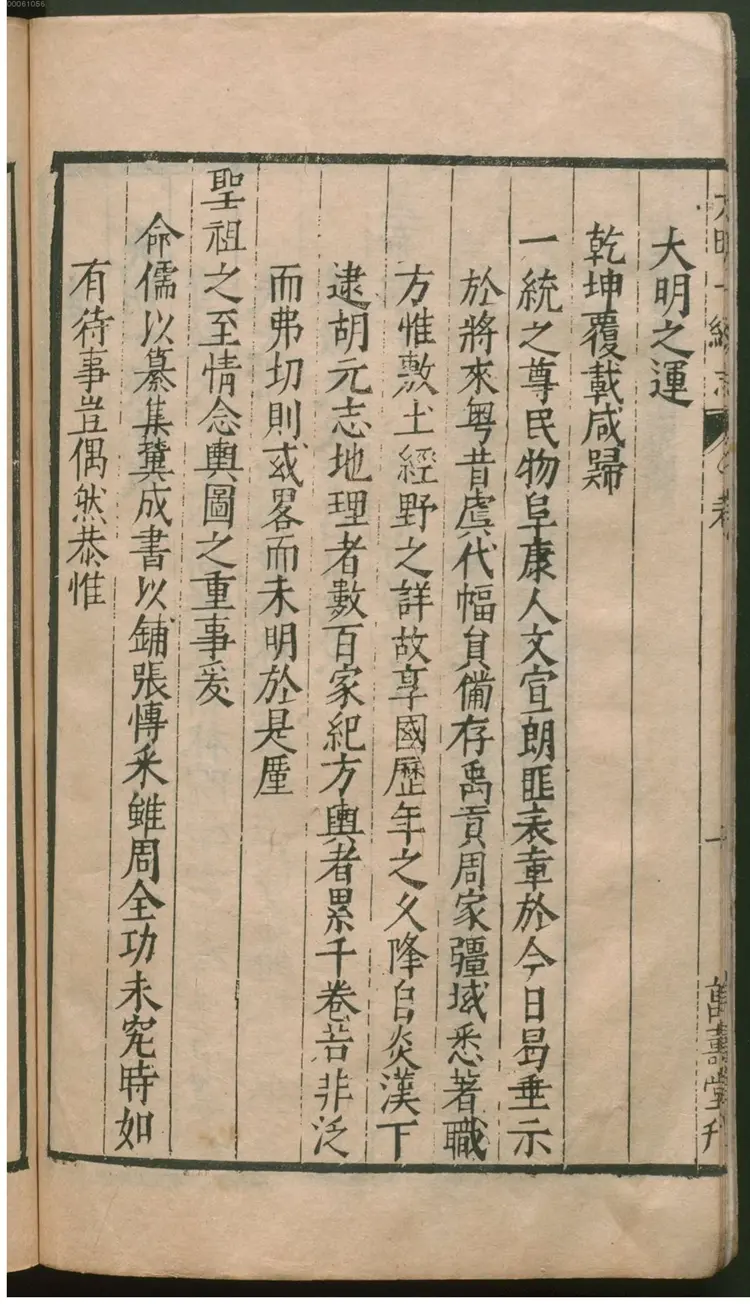 00061056
大明一統志
一
萬壽堂刊
大明之運
乾坤覆載咸歸
一統之尊民物阜康人文宣朗匪表章於今日曷垂示
於將來粤昔虞代幅員備存禹貢周家疆域悉著職
方惟敷土經野之詳故享國歷年之久降自炎漢下
逮胡元志地理者數百家紀方輿者累千卷若非泛
而弗切則或畧而未明於是厪
聖祖之至情念輿圖之重事爰
命儒以纂集冀成書以鋪張慱采雖周全功未究時如
有待事豈偶然恭惟